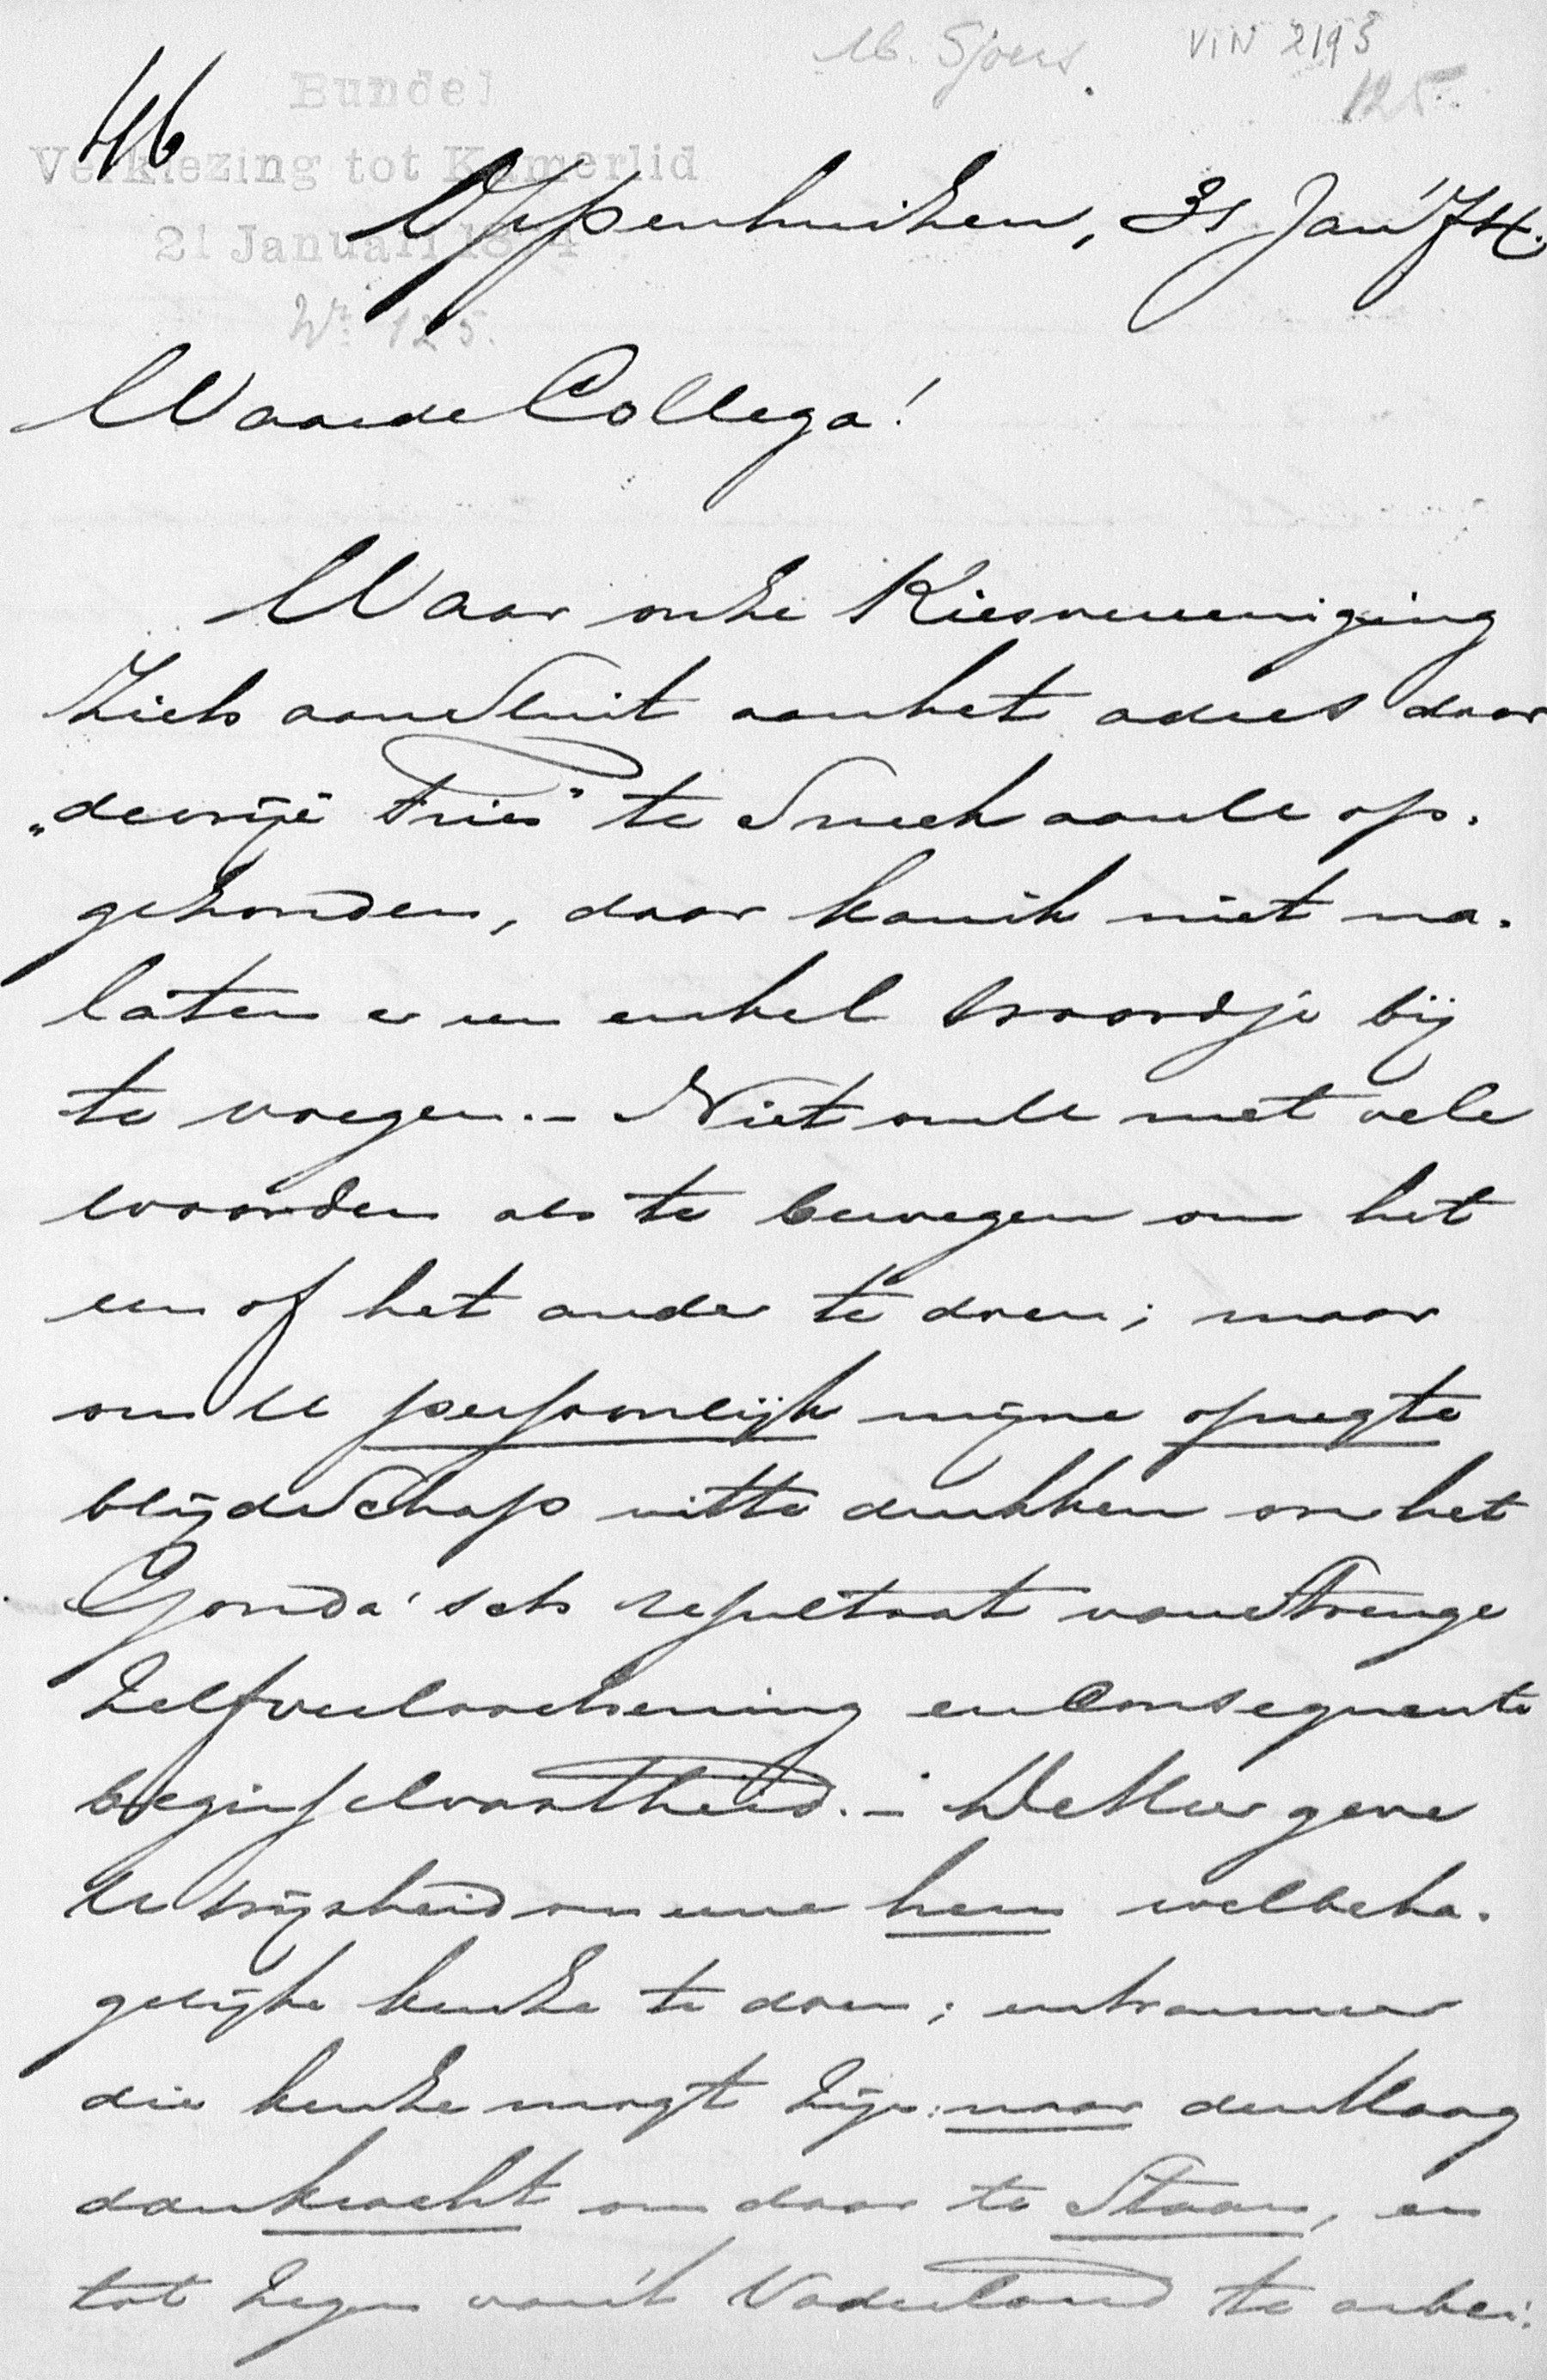 M. Sjoers. VIN 2193
125
46
Bundel
Verkiezing tot Kamerlid
21 Januari 1874
Nr. 125.
Oppenhuizen, 31 Jan '74.
Waarde Collega!
Waar onze Kiesvereeniging
zich aansluit aan het adres door
„de vrije Fries" te Sneek aan U op-
gezonden, daar kan ik niet na-
laten er een enkel woordje bij
te voegen. – Niet om U met vele
woorden als te bewegen om het
een of het ander te doen; maar
om U persoonlijk mijne opregte
blijdschap uit te drukken om het
Gouda'sch resultaat van strenge
zelfverloochening en Consequente
beginselvastheid. – De Heer geve
U wijsheid om eene hem welbeha-
gelijke keuze te doen; en wanneer
die keuze mogt zijn: naar den Haag
dan kracht om daar te staan, en
tot zegen van 't Vaderland te arbei-